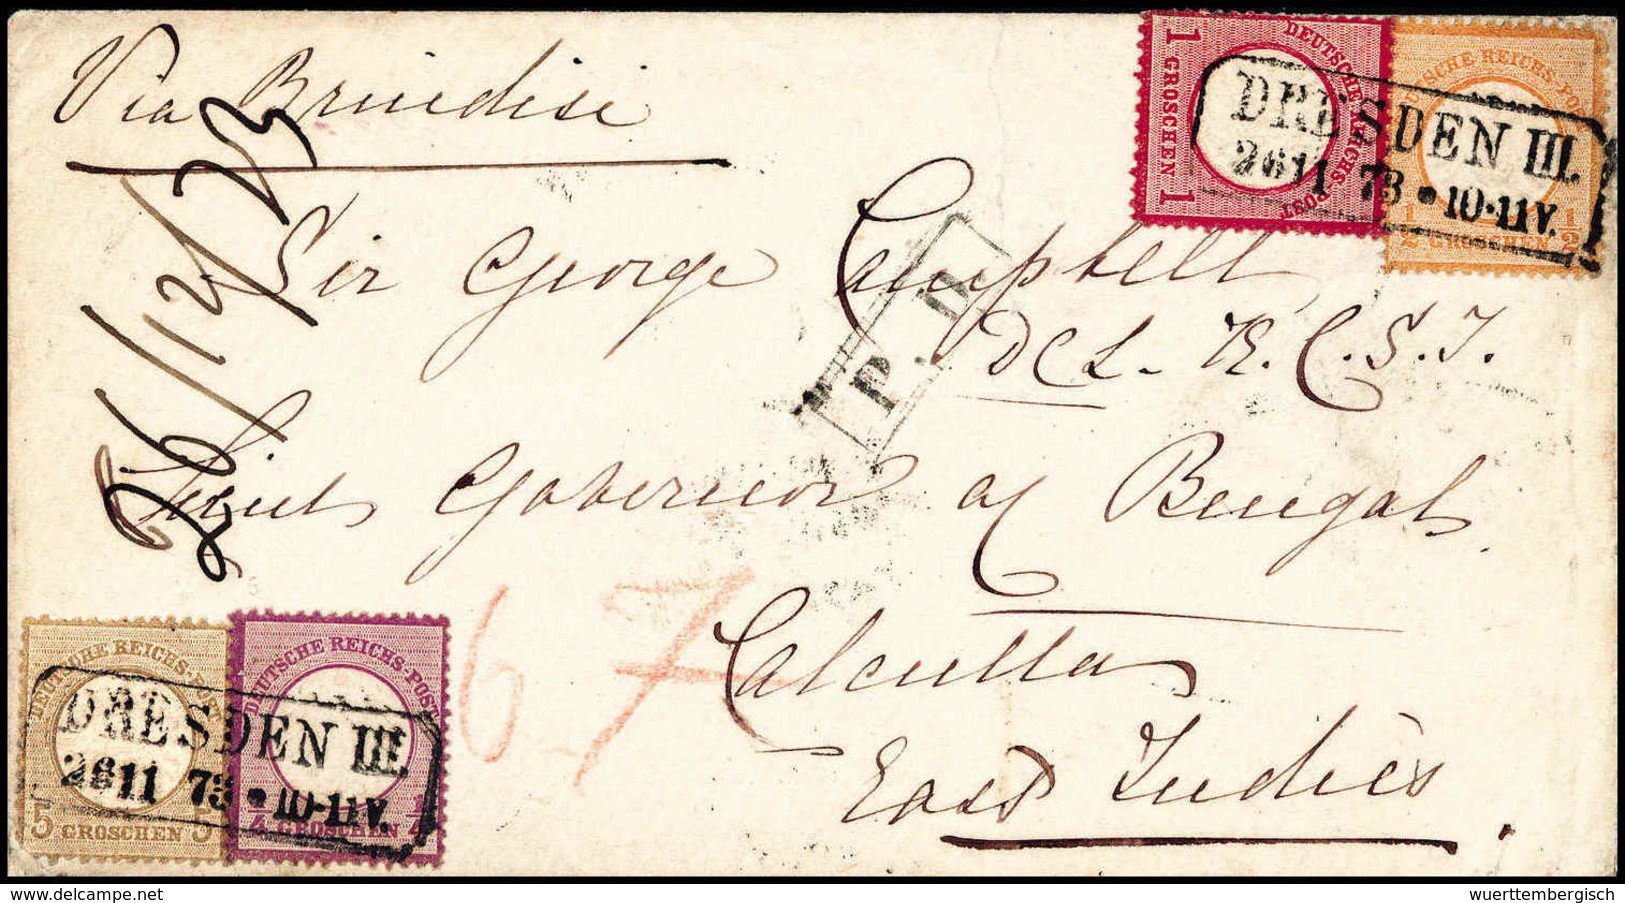 Via Brindisi
26/12/73
DEUTSCHE REICHS-POST
1 GROSCHEN 1
DEUTSCHE REICHS-POST
1/2 GROSCHEN 1/2
DRESDEN III.
26 11 73 * 10-11 V.
Sir George Campbell
DCL. K.C.S.I.
P.D.
Lieut Governor of Bengal
67
Calcutta
East Indies.
DEUTSCHE REICHS-POST
5 GROSCHEN 5
DEUTSCHE REICHS-POST
1/4 GROSCHEN 1/4
DRESDEN III.
26 11 73 * 10-11 V.
www.delcampe.net
wuerttembergisch